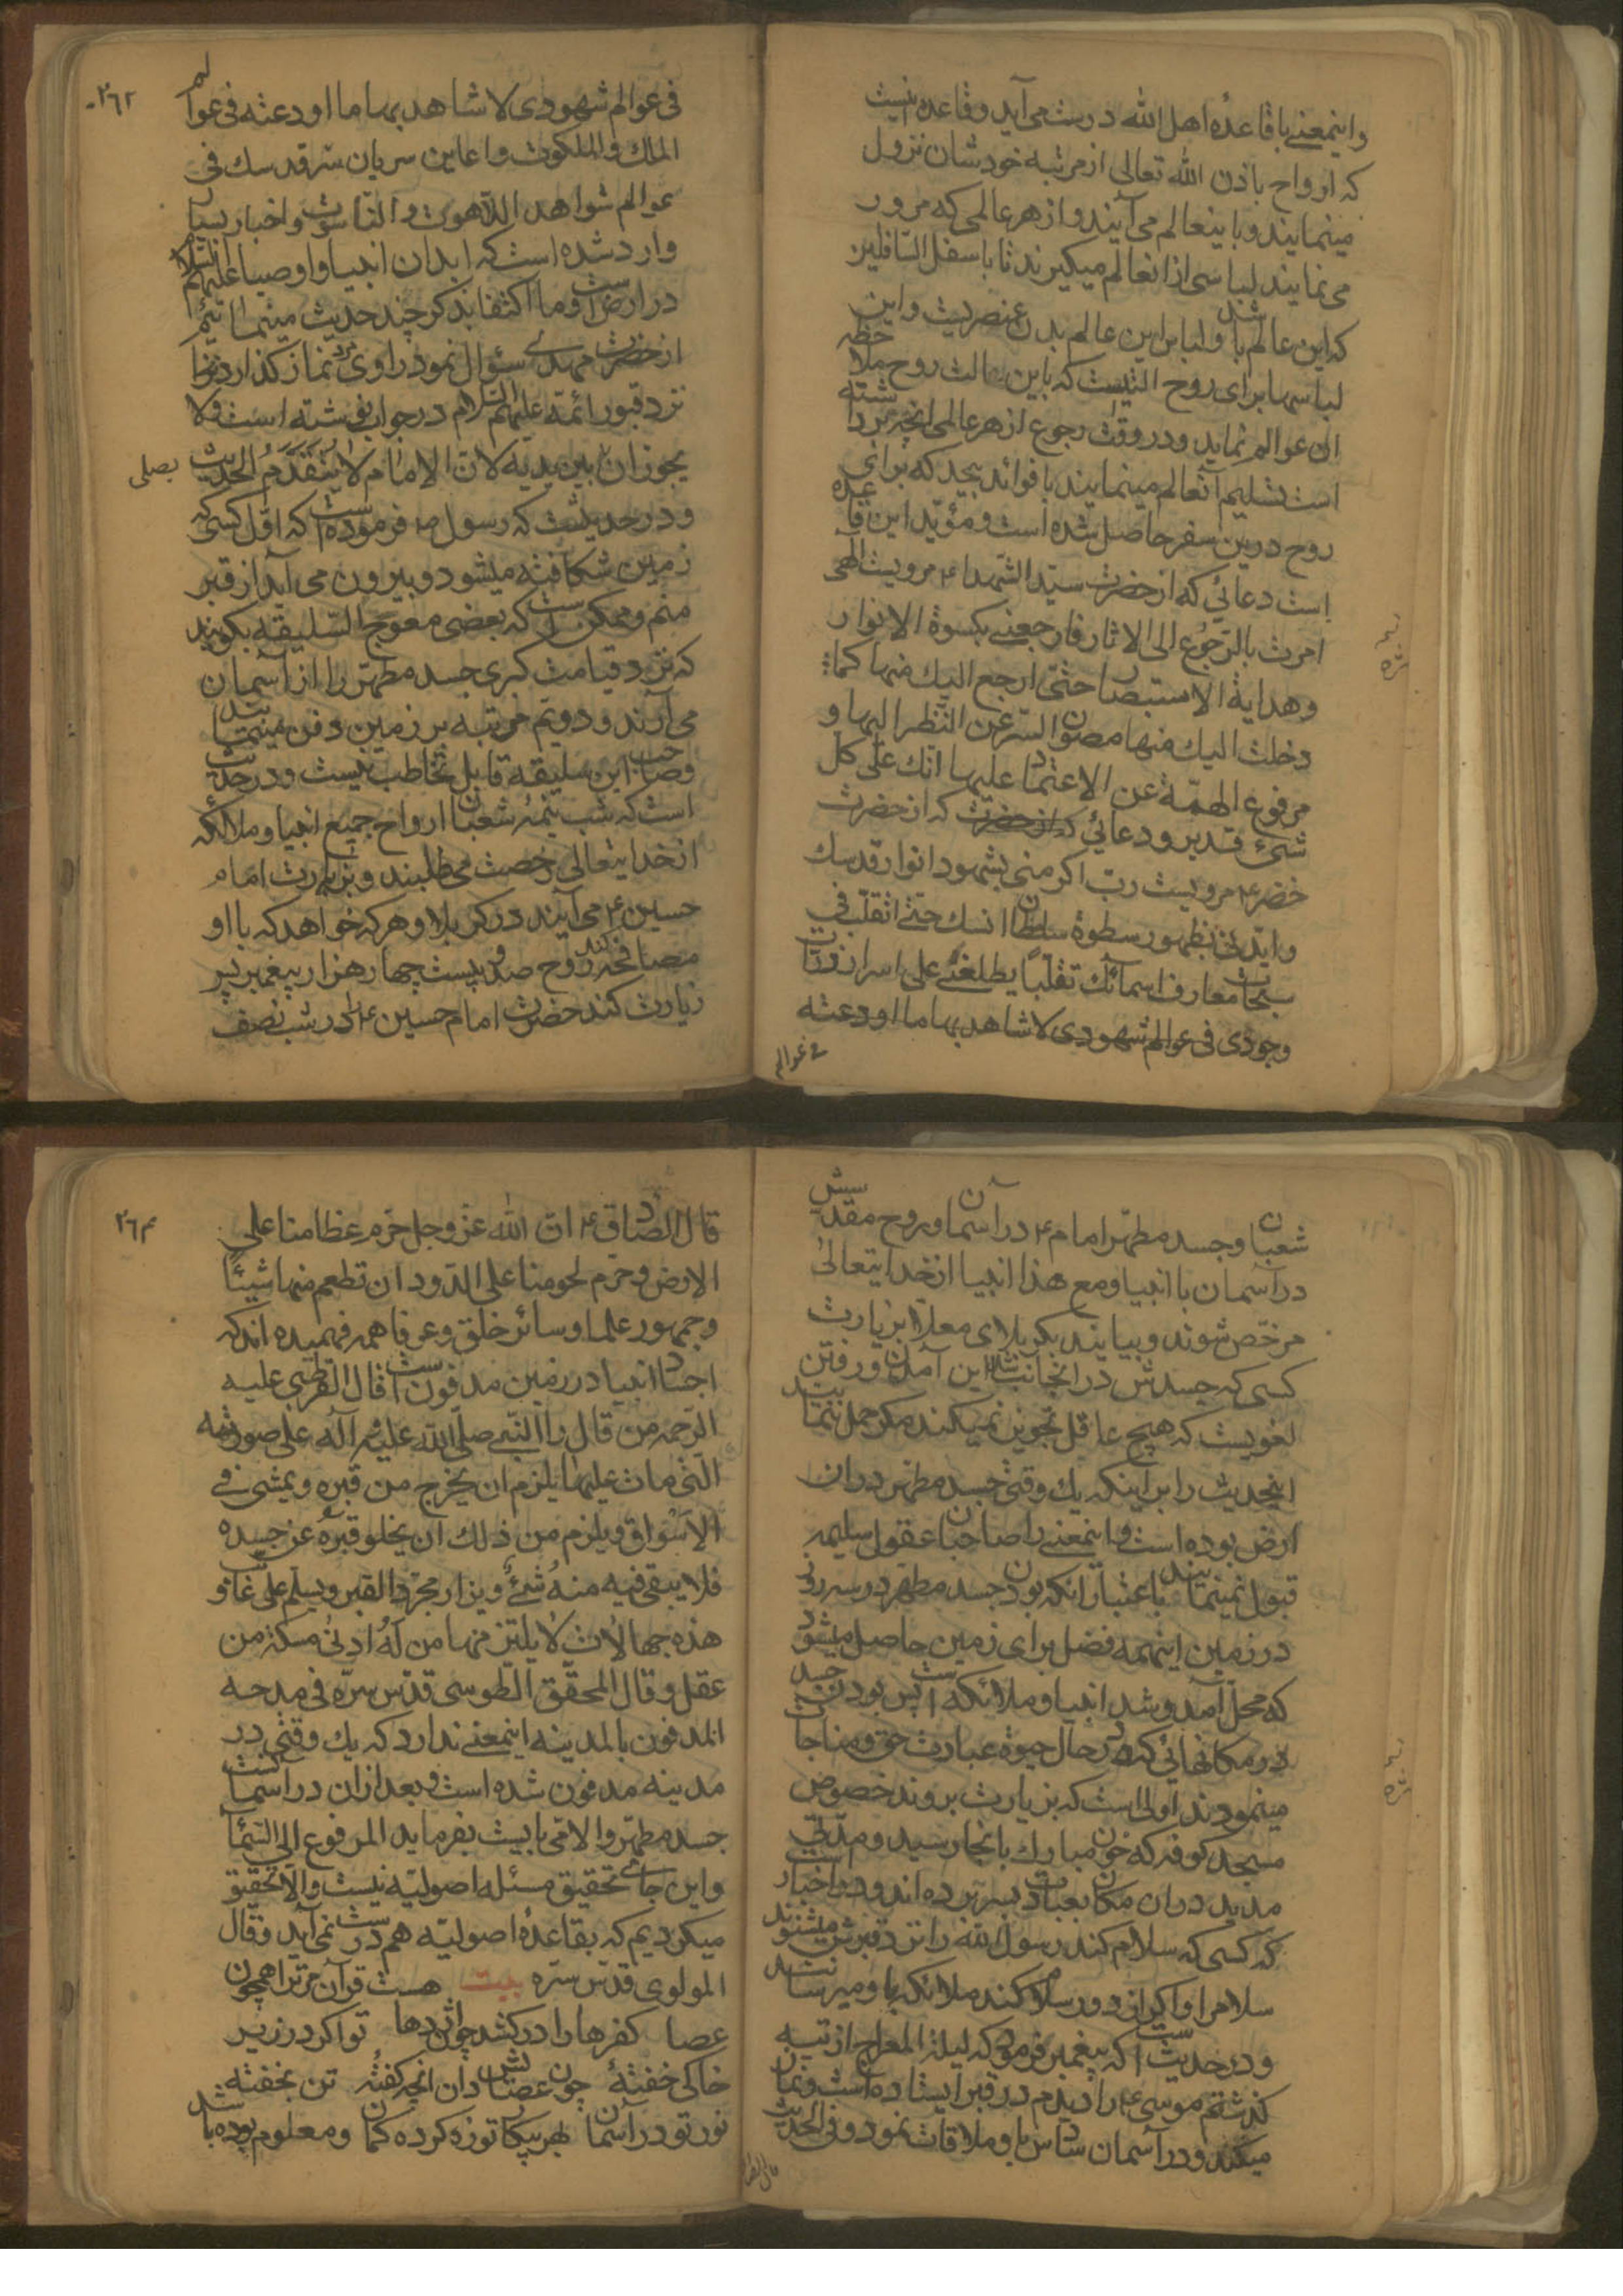 واینمعنے باقاعدهٔ اهل الله درست می آید وقاعده اینست
که ارواح باذن الله تعالی از مرتبه خودشان نزول
مینمایند و باینعالم می آیند و از هر عالمی که مرور
می نمایند لباسی از انعالم میکیرند تا باسفل السّافلین
که این عالم باشد ولباس این عالم بدن عنصریست واین
لباسها برای روح الثیست که باین آلت روح ملاحظه
ان عوالم نماید ودر وقت رجوع از هر عالمی انچه برداشته
است تسلیم آنعالم مینمایند با فوائد بیحد که برای
روح درین سفر حاصل شده است ومؤیّد این قاعده
است دعائی که از حضرت سیّد الشّهداء ع مرویست الهی
امرت بالرّجوع الی الاثار فارجعنے بکسوة الانوار
وهدایة الاستبصار حتّی ارجع الیك منها کما
دخلت الیك منها مصون السّرّ عن النّظر الیها و
مرفوع الهمّة عن الاعتماد علیها انك علی کل
شیئ قدیر ودعائی که از حضرت که از حضرت
خضر ع مرویست ربّ اکرمنی بشهود انوار قدسك
وایّدنی بظهور سطوة سلطان انسك حتّی اتقلّب فی
سبحات معارف اسمائك تقلّبًا یطلعنی علی اسرار ذرّات
وجودی فی عوالم شهودی لاشاهد بها ما اودعته
فی عوالم
٢٦٢
فی عوالم شهودی لاشاهد بها ما اودعته فی عوالم
الملك والملکوت واعاین سریان سّر قدسك فی
عوالم شواهد اللّاهوت والنّاسوت واخبار بسیار
وارد شده است که ابدان انبیا واوصیا علیهم السّلام
در ارض است وما اکتفا بذکر چند حدیث مینمائیم
از حضرت مهدی سؤال نمود راوی نماز کذاردن را
نزد قبور ائمّه علیهم السّلام در جواب نوشته است ولا
یجوز ان بین یدیه لانّ الامام لا یَتَقَدَّمُ الحدیث
یصلی
ودر حدیثست که رسول ص فرموده است که اوّل کسی که
زمین شکافته میشود و بیرون می آید از قبر
منم وممکن است که بعضی معوج السّلیقه بکویند
که نزد قیامت کبری جسد مطهّر را از آسمان
می آرند و دویّم مرتبه بر زمین دفن مینمایند
وصاحب این سلیقه قابل تخاطب نیست ودر حدیث
است که شب نیمهٔ شعبان ارواح جمیع انبیا وملائکه
از خدایتعالی رخصت می طلبند و بزیارت امام
حسین ع می آیند در کربلا وهرکه خواهد که با او
مصافحه کند روح صد و بیست چهار هزار پیغمبر پس
زیارت کند حضرت امام حسین ع را در شب نصف
شعبان وجسد مطهّر امام ع در آسمان وروح مقدّسش
در آسمان با انبیا ومع هذا انبیا از خدایتعالی
مرخّص شوند و بیایند بکربلای معلّا بزیارت
کسی که جسدش در انجا نباشد این آمدن و رفتن
لغویست که هیچ عاقل تجویز نمیکند مکر حمل نمایند
اینحدیث را بر اینکه یك وقتی جسد مطهّر در ان
ارض بوده است واینمعنے را صاحبان عقول سلیمه
قبول نمینمایند باعتبار انکه بودن جسد مطهّر در سه روز
در زمین اینهمه فضل برای زمین حاصل میشود
که محلّ آمد و شد انبیا وملائکه است پس بودن جسد
در مکانهائی که در حال حیوة عبادت حق ومناجات
مینمودند اولی است که بزیارت بروند خصوص
مسجد کوفه که خون مبارك بانجا رسید ومدّتی
مدید در ان مکان بعبادت بسر برده اند ودر اخبار است
که کسی که سلام کند رسول الله را نزد قبرش میشنوند
سلام را و اکر از دور سلام کند ملائکه باو میرسانند
ودر حدیث است که پیغمبر فرمود که لیلة المعراج از تیه
کذشتم موسی ع را دیدم در قبر ایستاده است ونماز
میکند و در آسمان سادس باو ملاقات نمود وفی الحدیث
قال الصّادق
٢٦٣
قال الصّادق ع انّ الله عزّ وجل حرّم عظامنا علی
الارض وحرّم لحومنا علی الدّود ان تطعم منها شیئًا
وجمهور علما وسائر خلق وعرفا همه فهمیده اند که
اجساد انبیا در زمین مدفون است قال القرطبی علیه
الرّحمه من قال رأ النّبی صلّی الله علیه وآله علی صورته
الّتی مات علیها یلزم ان یخرج من قبره و یمشی فی
الاسواق ویلزم من ذلك ان یخلو قبرهُ عن جسده
فلا یبقی فیه منهُ شئٌ ویزار مجرّد القبر ویسلم علی غائب و
هذه جهالات لا یلتزمها من لهُ ادنی مسکة من
عقل وقال المحقّق الطّوسی قدّس سرّه فی مدحه
المدفون بالمدینه اینمعنے ندارد که یك وقتی در
مدینه مدفون شده است وبعد ازان در اسمانست
جسد مطهّر والا می بایست بفرماید المرفوع الی السّماء
واین جای تحقیق مسئله اصولیّه نیست والّا تحقیق
میکردیم که بقاعدهٔ اصولیّه هم درست نمی آید وقال
المولوی قدّس سرّه بیت هست قرآن مر ترا همچون
عصا کفرها را درکشد چون اژدها تو اکر در زیر
خاکی خفتهٔ چون عصایش دان انچه کفتهٔ تن بخفته
نور تو در آسمان بهر پیکار تو زه کرده کمان ومعلوم بوده باشد